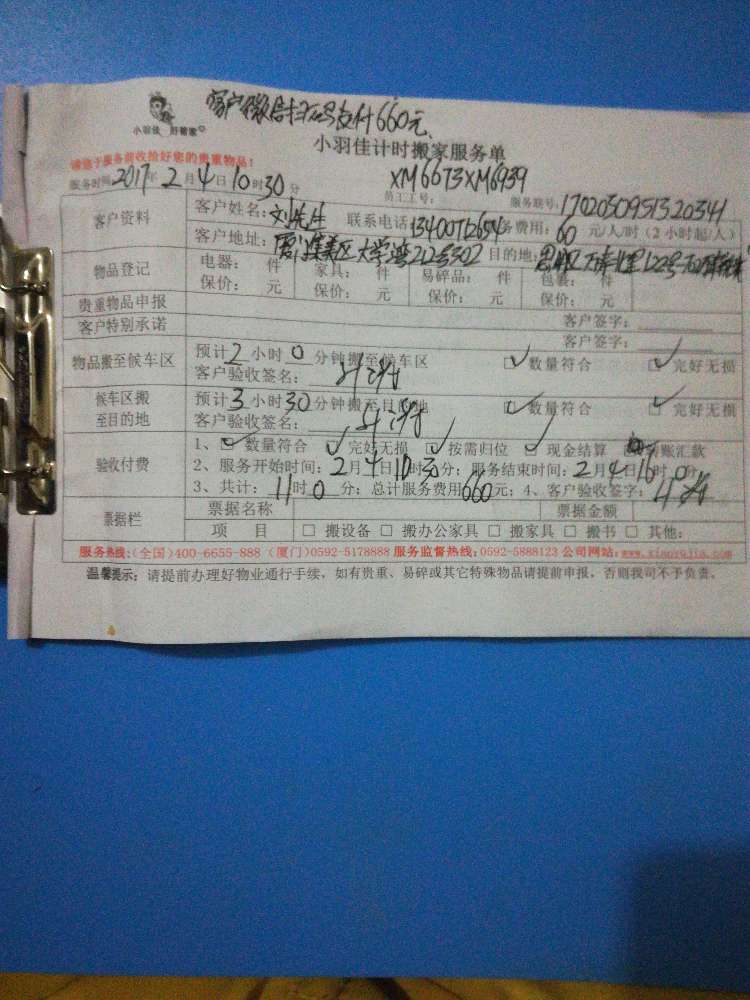 客户微信扫码支付660元
小羽佳 好管家
小羽佳计时搬家服务单
请您于服务前收拾好您的贵重物品!
XM6673XM6939
服务时间2017年2月4日10时30分 员工工号: 服务联号:
客户资料 客户姓名:刘先生 联系电话 务费用:60 元/人/时(2小时起/人)
客户地址:厦门集美区大学湾212号302 目的地:
物品登记 电器: 件 家具: 件 易碎品: 件 包装: 件
保价: 元 保价: 元 保价: 元 保价: 元
贵重物品申报 客户签字:
客户特别承诺 客户签字:
物品搬至候车区 预计2小时0分钟搬至候车区 数量符合 完好无损
客户验收签名:
候车区搬至目的地 预计3小时30分钟搬至目的地 数量符合 完好无损
客户验收签名:
验收付费 1、数量符合 完好无损 按需归位 现金结算 账汇款
2、服务开始时间:2月4日10时30分;服务结束时间:2月4日16时0分;
3、共计:11时0分;总计服务费用660元;4、客户验收签字:
票据栏 票据名称 票据金额
项 目 □ 搬设备 □ 搬办公家具 □ 搬家具 □ 搬书 □ 其他:
服务热线:(全国)400-6655-888 (厦门)0592-5178888 服务监督热线:0592-5888123 公司网站:www.xiaoyujia.com
温馨提示:请提前办理好物业通行手续,如有贵重、易碎或其它特殊物品请提前申报,否则我司不予负责。